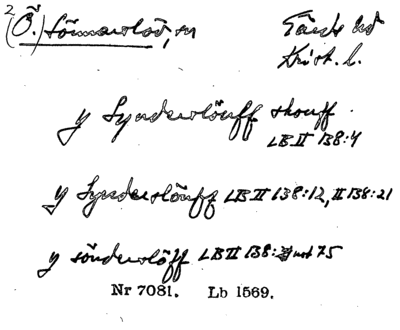 2(Ö.) Sönnarlöv, sn Färs hd
Krist. l.
y Synderlöuff skouff
LB II 138:4
y Synderlöuff LB II 138:12, II 138:21
y sönderlöff LB II 138: not 75
Nr 7081. Lb 1569.